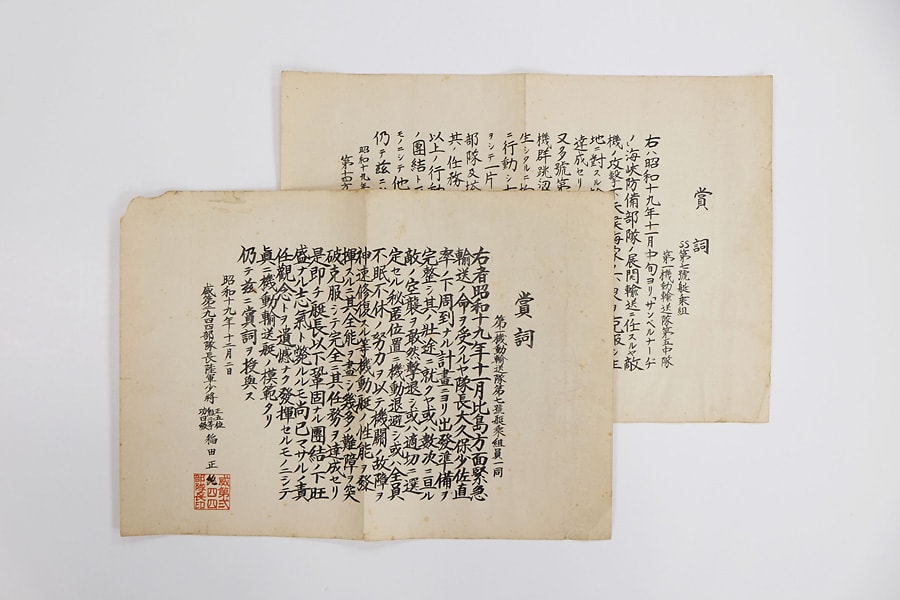 賞詞
第一機動輸送隊第七號艇乗組員一同
右者昭和十九年十一月比島方面緊急
輸送ノ命ヲ受クルヤ隊長大久保少佐直
率ノ下周到ナル計畫ニヨリ出發準備ヲ
完整シ其ノ壮途ニ就クヤ或ハ數次ニ亘ル
敵ノ空襲ヲ敢然撃退シ或ハ適切ニ選
定セル秘匿位置ニ機動退避シ或ハ全員
不眠不休ノ努力ヲ以テ機關ノ故障ヲ
神速修復スル等機動艇ノ性能ヲ發
揮スルニ其全能ヲ盡シ幾多ノ難障ヲ突
破克服シテ完全ニ其ノ任務ヲ達成セリ
是即チ艇長以下鞏固ナル團結ノ下旺
盛ナル志氣ト斃ルルモ尚已マサルノ責
任觀念トヲ遺憾ナク發揮セルモノニシテ
眞ニ機動輸送艇ノ模範タリ
仍テ茲ニ賞詞ヲ授與ス
昭和十九年十二月二日
威第二九四四部隊長陸軍少將
正五位
功四級
稲田正純
威第弐
四四
部隊長印
賞詞
SS第七號艇乗組
第一機動輸送隊第五中隊
右ハ昭和十九年十一月中旬ヨリ「サンベルナーヂ
ノ海峡防備部隊ノ展開輸送ニ任スルヤ敵
機ノ攻撃
地ニ對スル
達成セリ
又多號第
機群跳
生シタル
ニ行動シ
ヲシテ一片
部隊及
其ノ任務
以上ノ行動
ノ團結ト
モノニシテ他
仍テ茲ニ
昭和十九年
第十四方